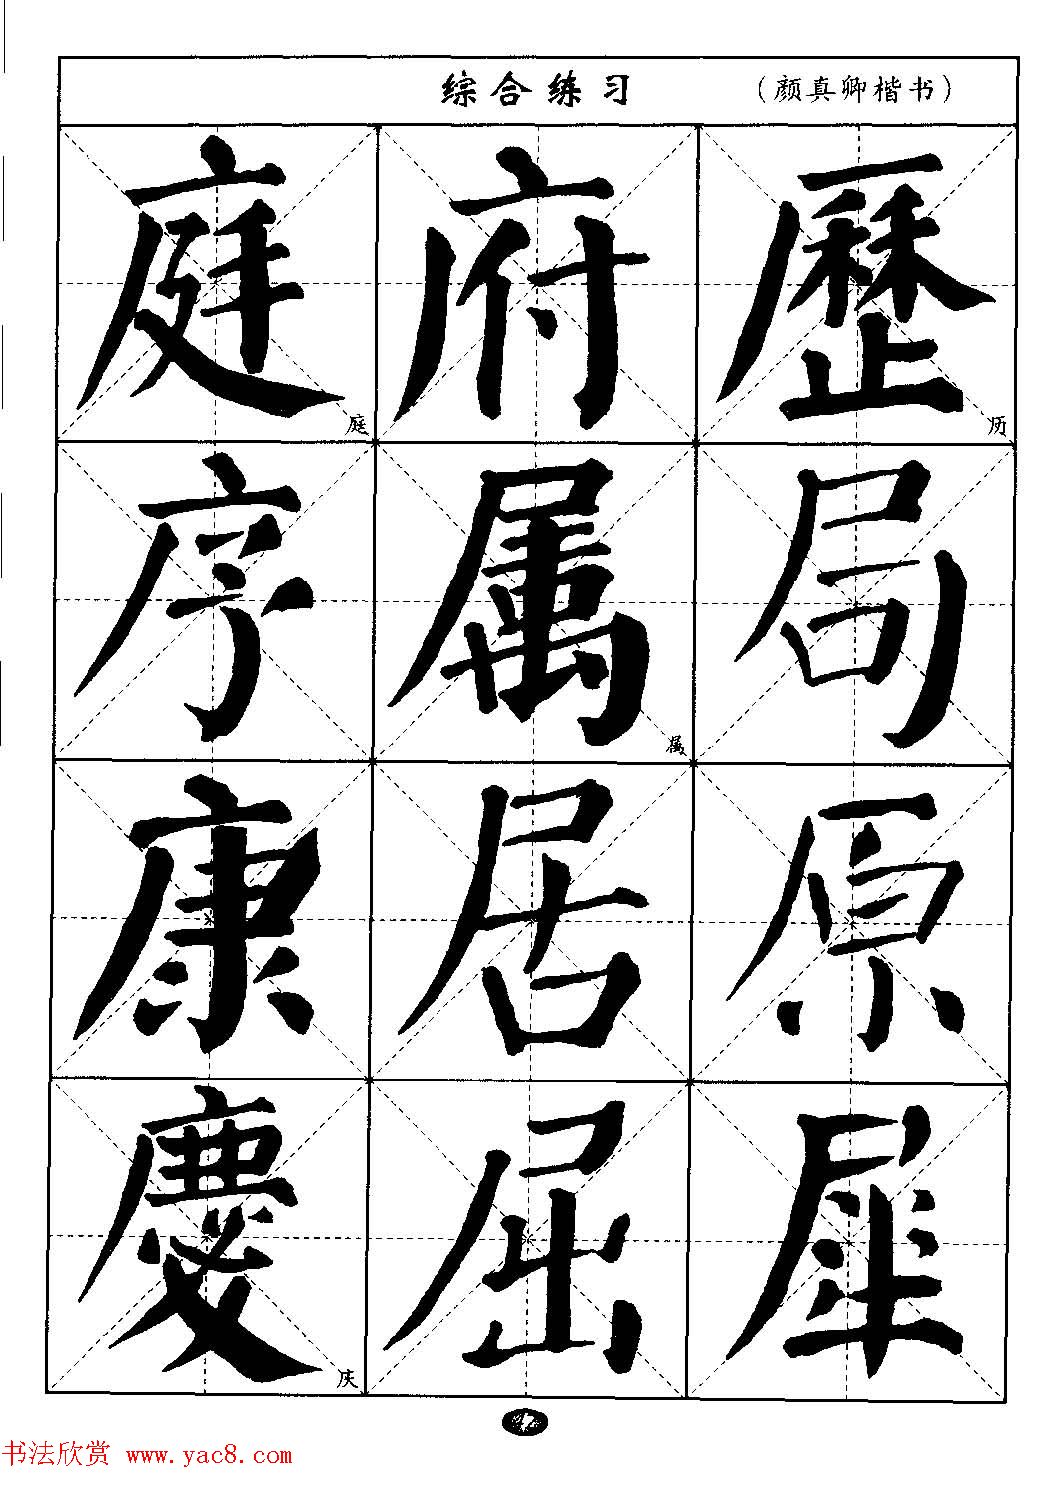 综合练习 （颜真卿楷书）
庭 府 歷
庭 历
序 属 局
属
康 居 原
慶 屈 犀
庆
42
书法欣赏 www.yac8.com